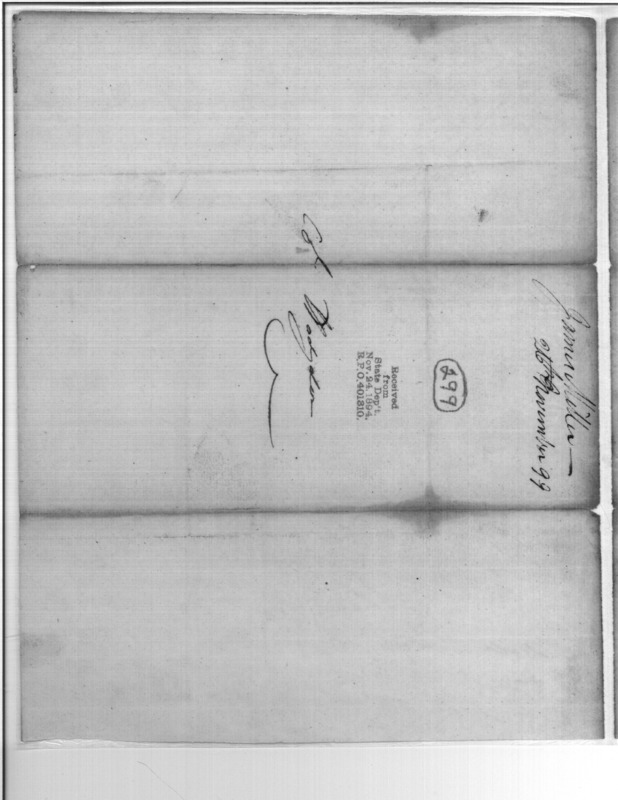 Jasmin Miller
26th November 99
499
Received
from
State Dep't.
Nov. 24, 1894.
R. P. O. 401310.
Col. Hodgdon